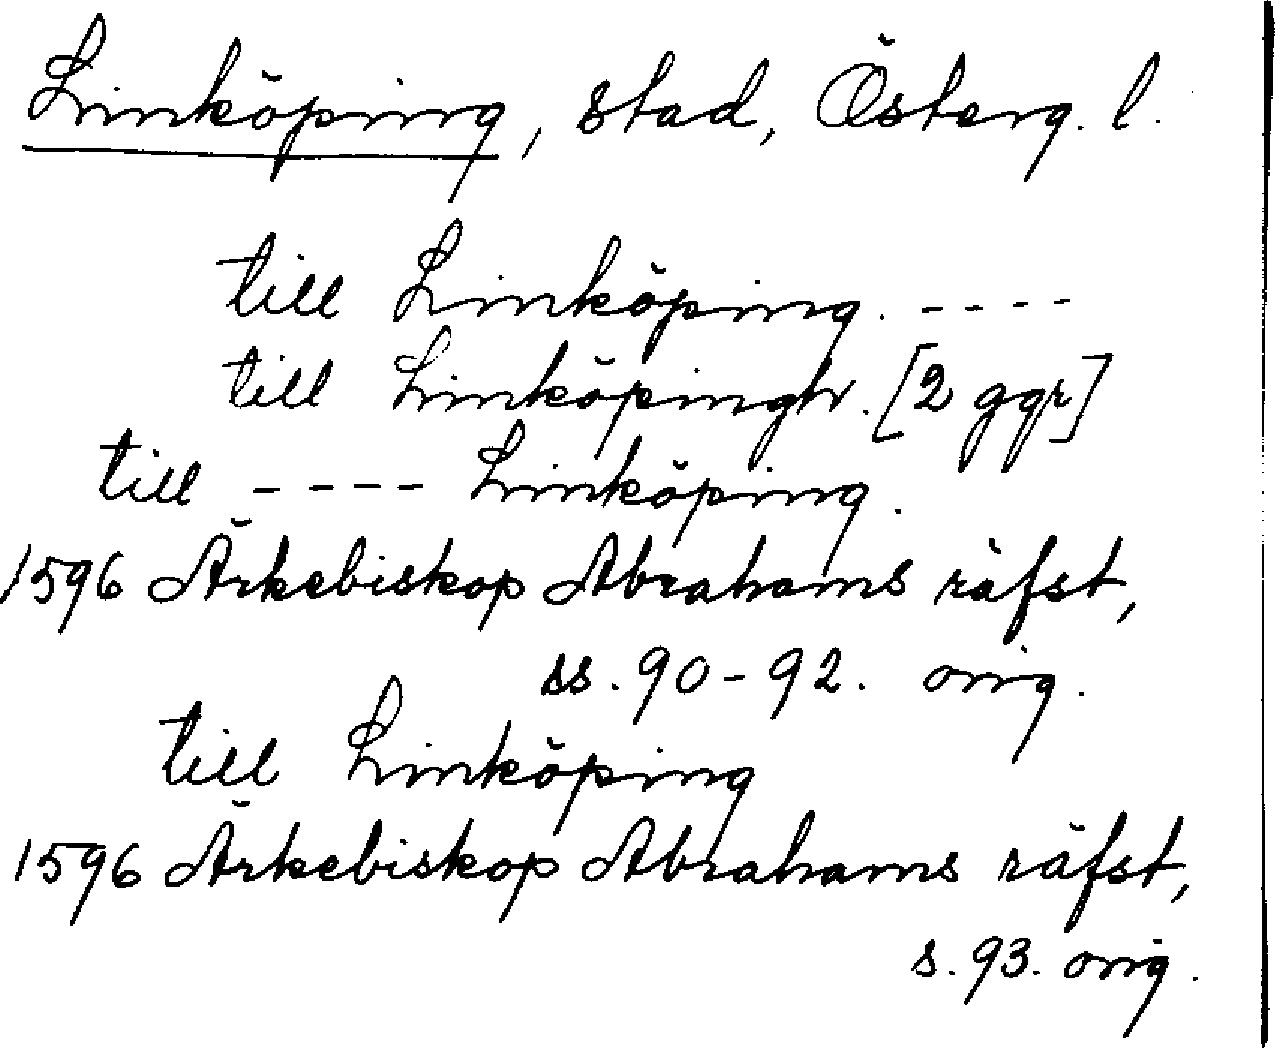 Linköping, stad, Österg. l.
till Linköping. ----
till Linköpingh. [2 ggr]
till ---- Linköping.
1596 Ärkebiskop Abrahams räfst,
ss. 90-92. orig.
till Linköping
1596 Ärkebiskop Abrahams räfst,
s. 93. orig.